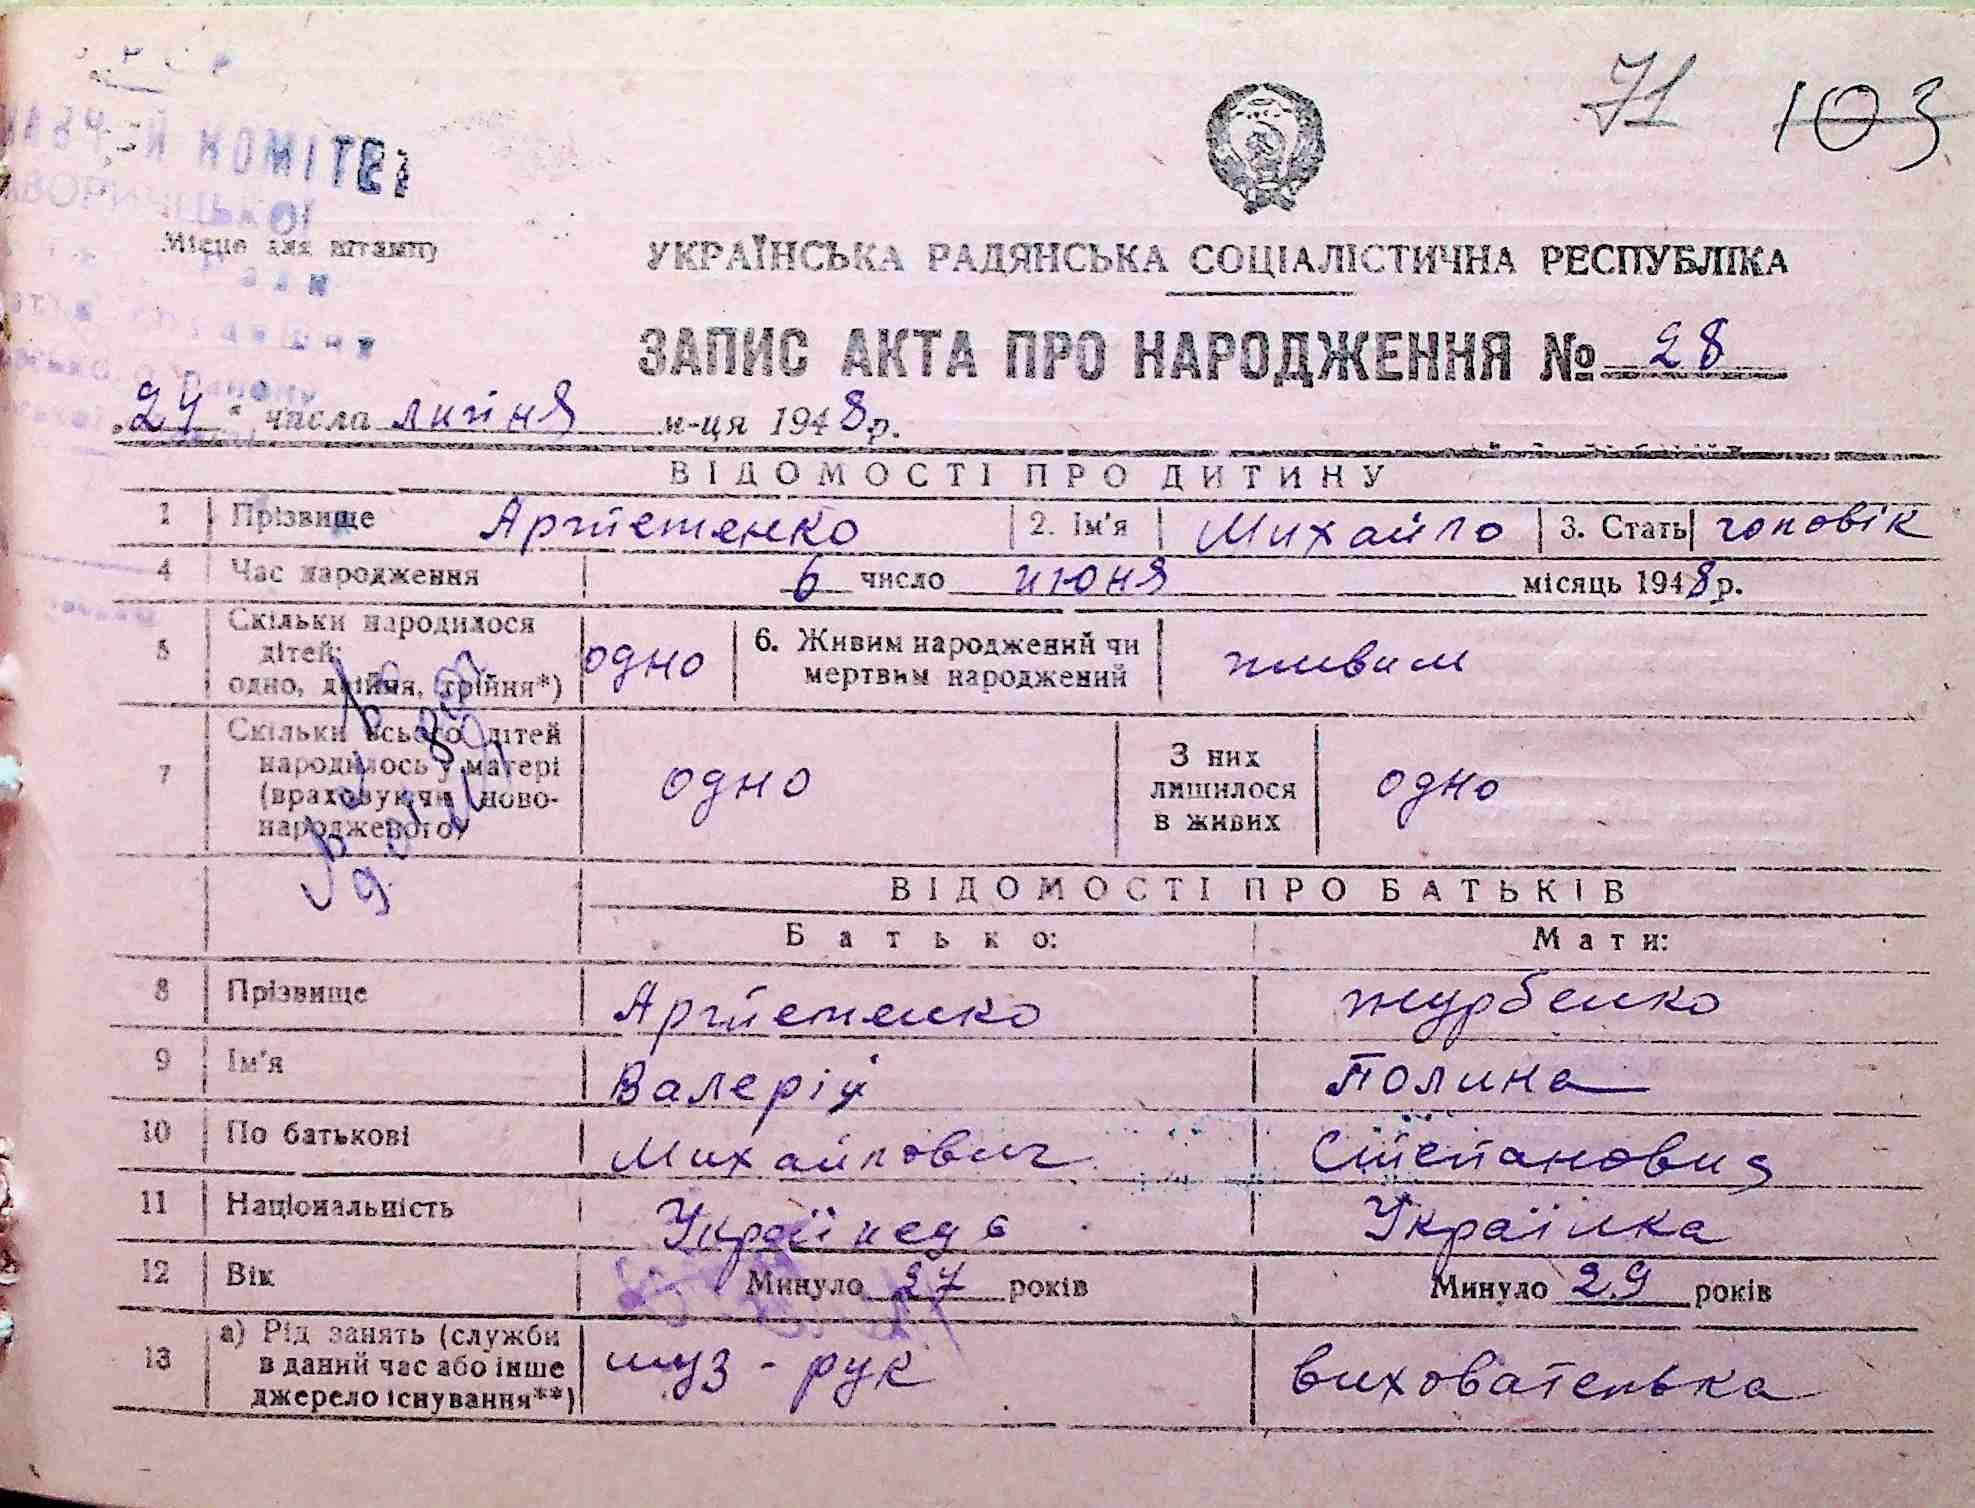 71 103
КОМІТЕТ
Місце для штампу
УКРАЇНСЬКА РАДЯНСЬКА СОЦІАЛІСТИЧНА РЕСПУБЛІКА
ЗАПИС АКТА ПРО НАРОДЖЕННЯ № 28
„24“ числа липня м-ця 1948 р.
ВІДОМОСТІ ПРО ДИТИНУ
1 Прізвище Артеменко 2. Ім'я Михайло 3. Стать чоловік
4 Час народження 6 число июня місяць 1948 р.
5 Скільки народилося
дітей:
одно, двійня, трійня*) одно 6. Живим народжений чи
мертвим народжений живим
7 Скільки всього дітей
народилось у матері
(враховуючи ново-
народженого) одно З них
лишилося
в живих одно
ВІДОМОСТІ ПРО БАТЬКІВ
Батько: Мати:
8 Прізвище Артеменко Журбенко
9 Ім'я Валерій Полина
10 По батькові Михайлович Степановна
11 Національність Українець Українка
12 Вік Минуло 27 років Минуло 29 років
13 а) Рід занять (служби
в даний час або інше
джерело існування**) муз-рук вихователька